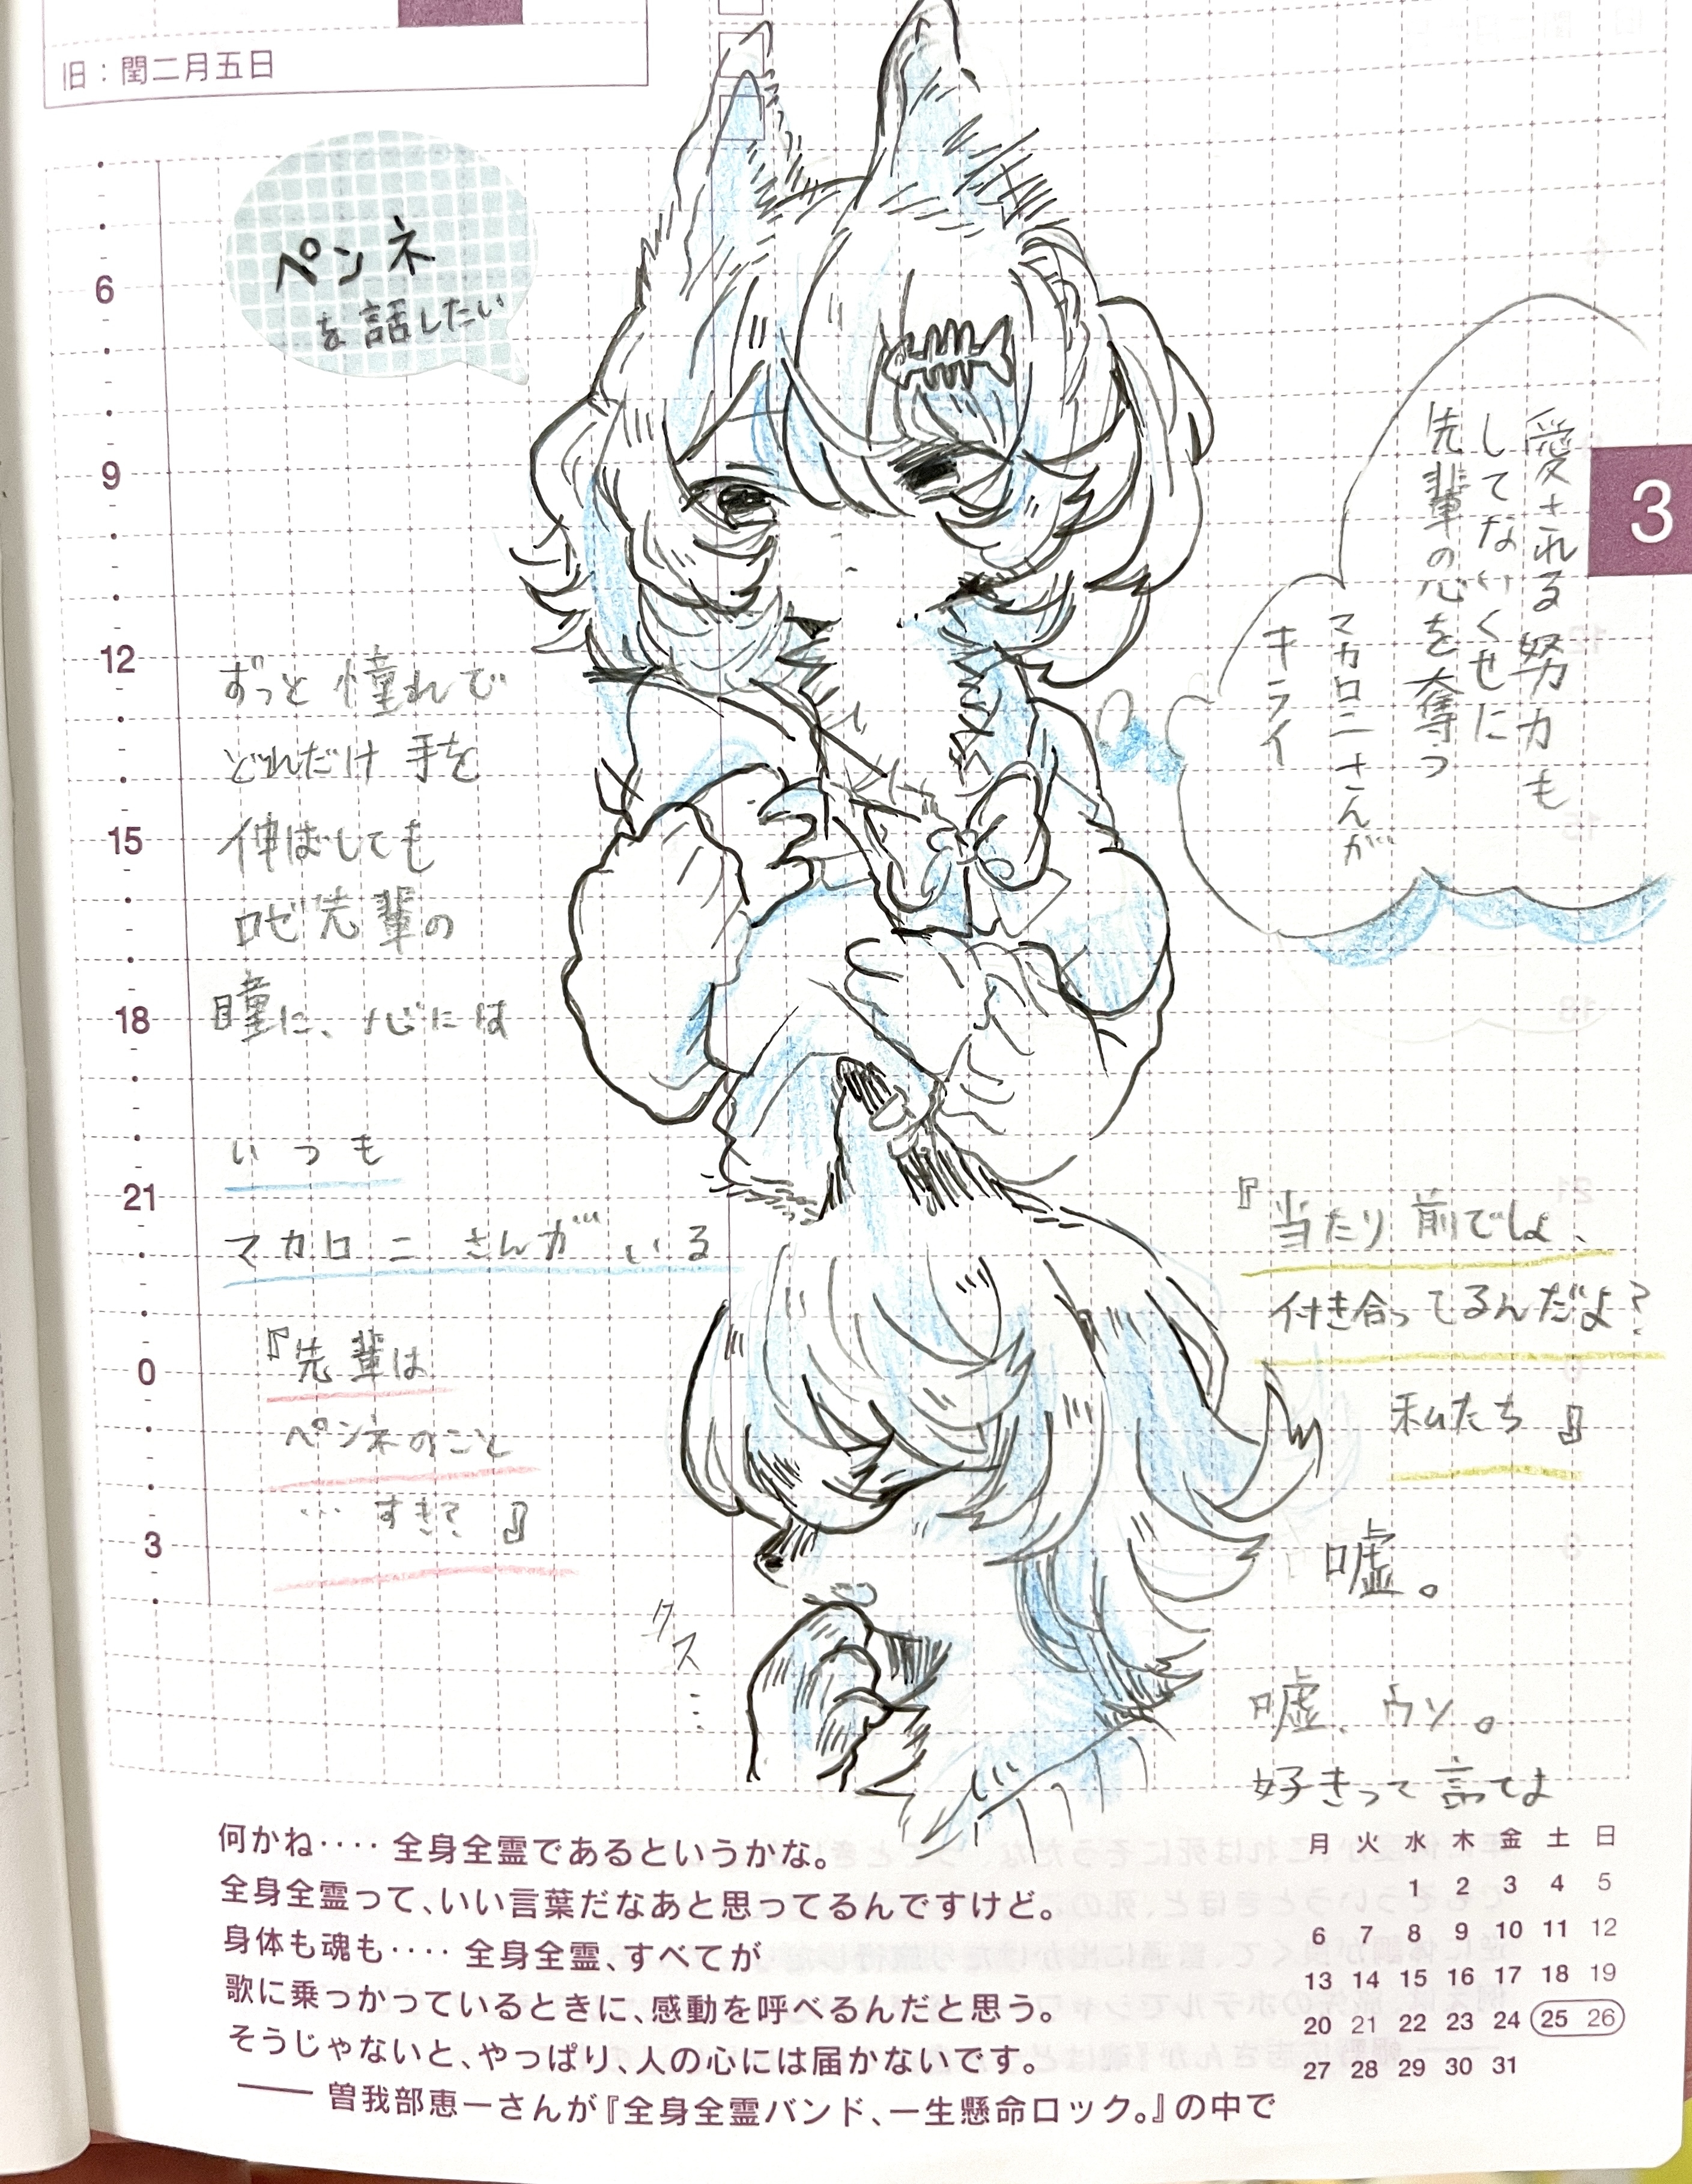 旧：閏二月五日
ペンネ
を話したい
3
愛される努力も
してないくせに
先輩の心を奪う
マカロニさんが
キライ
6
9
12
15
18
21
0
3
ずっと憧れで
どれだけ手を
伸ばしても
ロゼ先輩の
瞳に、心には
いつも
マカロニさんがいる
『先輩は
ペンネのこと
…すき？』
『当たり前でしょ、
付き合ってるんだよ？
私たち』
嘘。
嘘、ウソ。
好きって言ってよ
クス…
何かね‥‥全身全霊であるというかな。
全身全霊って、いい言葉だなあと思ってるんですけど。
身体も魂も‥‥全身全霊、すべてが
歌に乗っかっているときに、感動を呼べるんだと思う。
そうじゃないと、やっぱり、人の心には届かないです。
——曽我部恵一さんが『全身全霊バンド、一生懸命ロック。』の中で
月 火 水 木 金 土 日
1 2 3 4 5
6 7 8 9 10 11 12
13 14 15 16 17 18 19
20 21 22 23 24 25 26
27 28 29 30 31